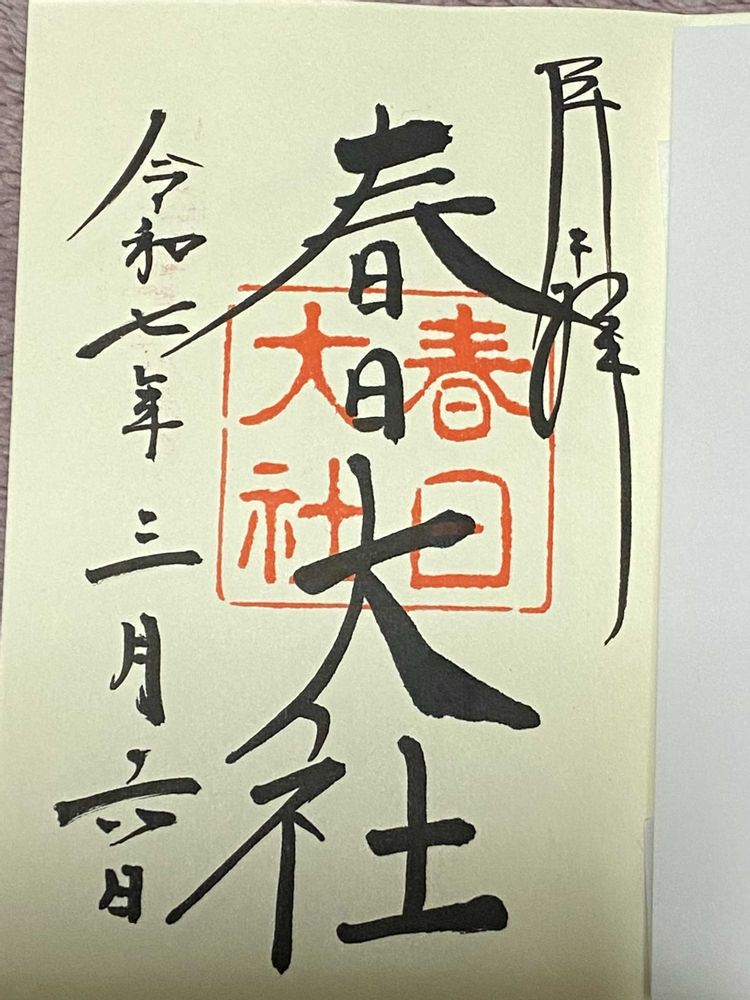 春日大社
春日
大社
令和七年三月六日